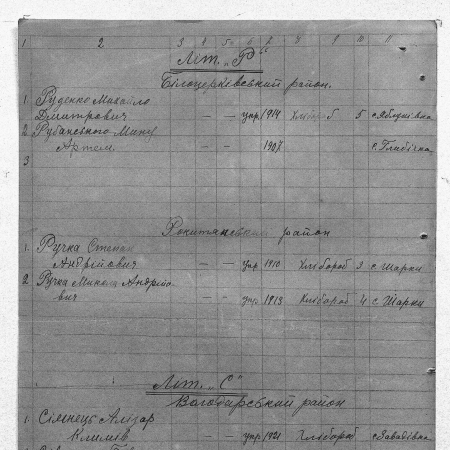 1 2 3 4 5 6 7 8 9 10 11
Літ. „Р"
Білоцерківський район.
1. Руденко Михайло
Дмитрович — — укр. 1914 Хлібороб 5 с. Яблунівка
2. Рубанського
Артем. 1907 с. Глибічка
3
Рокитянський район
1. Ручка Степан
Андрійович — — укр. 1910 Хлібороб 3 с. Шарки
2. Ручка Микола Андрійо
вич — — укр. 1913 Хлібороб 4 с. Шарки
Літ. „С"
район
1. Сіянець
Климів — — укр. 1921 Хлібороб с. Завадівка